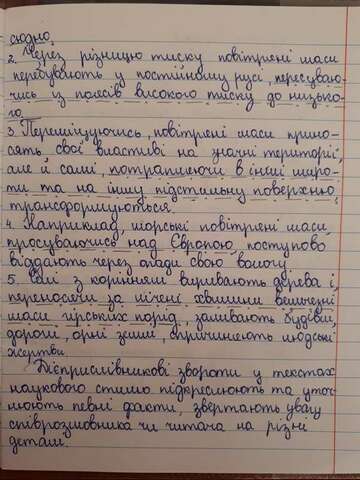 сюдно.
2. Через різницю тиску повітряні маси
перебувають у постійному русі, пересуваю-
чись із поясів високого тиску до низько-
го.
3. Переміщуючись, повітряні маси прино-
сять свої властиві на значні території,
але й самі, потрапляючи в інші широ-
ти та на іншу підстильну поверхню,
трансформуються.
4. Наприклад, морські повітряні маси,
просуваючись над Європою, поступово
віддають через опади свою вологу.
5. Селі з корінням виривають дерева і,
переносячи за лічені хвилини величезні
маси гірських порід, заливають будівлі,
дороги, орні землі, спричиняють людські
жертви.
Дієприслівникові звороти у текстах
наукового стилю підкреслюють та уточ-
нюють певні факти, звертають увагу
співрозмовника чи читача на різні
деталі.